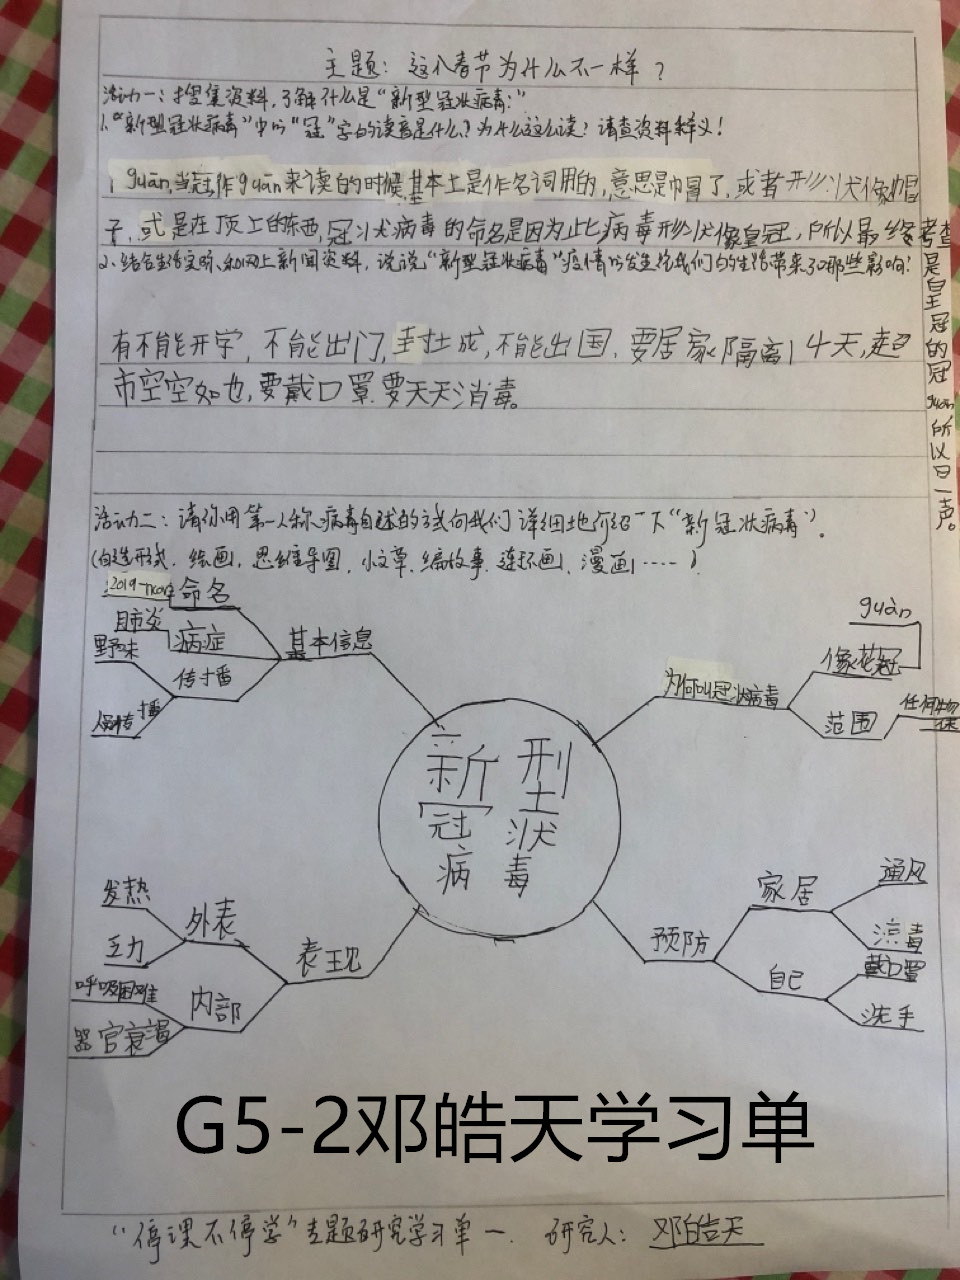 主题：这个春节为什么不一样？
活动一：搜集资料，了解什么是“新型冠状病毒：”
1.“新型冠状病毒”中的“冠”字的读音是什么？为什么这么读？请查资料释义！
guān，当冠作guān来读的时候，基本上是作名词用的，意思是帽冒了，或者形状像帽
子，或是在顶上的东西，冠状病毒的命名是因为此病毒形状像皇冠，所以最终考查
是皇冠的冠guān所以曰一声。
2、结合生活实际、和网上新闻资料，说说“新型冠状病毒”疫情的发生给我们的生活带来了哪些影响？
有不能开学，不能出门，封城，不能出国，要居家隔离14天，超
市空空如也，要戴口罩.要天天消毒。
活动二：请你用第一人称、病毒自述的方式向我们详细地介绍一下“新冠状病毒”。
（自选形式.绘画，思维导图，小文章，编故事，连环画，漫画……）
2019-ncov 命名
肺炎 病症
野味
传播
基本信息
guān
像花冠
为何叫冠状病毒
范围
任何物
新型
冠状
病毒
发热
乏力
外表
呼吸困难
器官衰竭
内部
表现
预防
家居
通风
消毒
自己
戴口罩
洗手
G5-2邓皓天学习单
“停课不停学”专题研究学习单一. 研究人：邓皓天